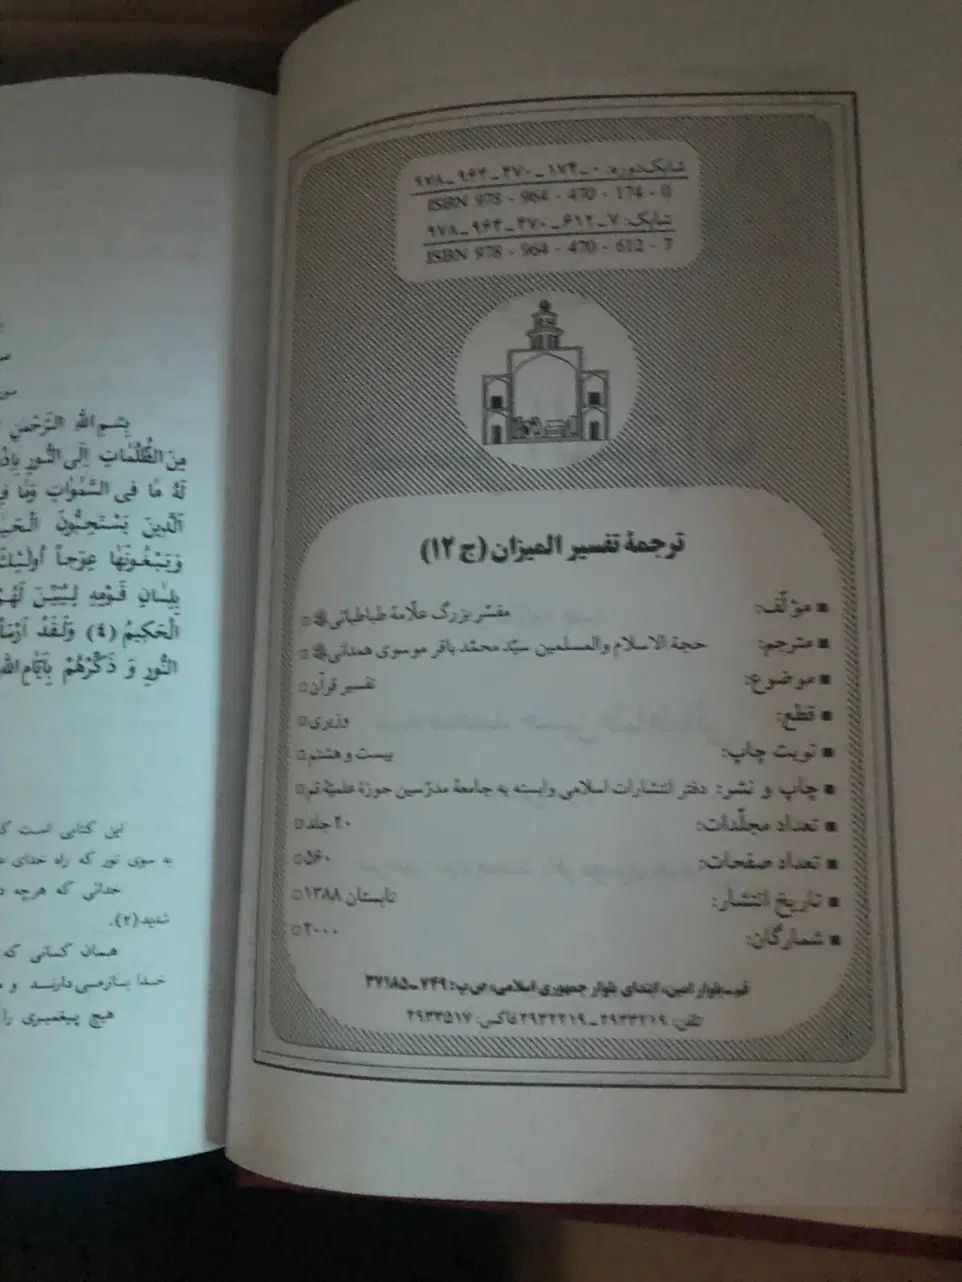 شابک دوره: ۰ـ۱۷۴ـ۴۷۰ـ۹۶۴ـ۹۷۸
ISBN 978 - 964 - 470 - 174 - 0
شابک: ۷ـ۶۱۲ـ۴۷۰ـ۹۶۴ـ۹۷۸
ISBN 978 - 964 - 470 - 612 - 7
ترجمهٔ تفسیر المیزان (ج ۱۲)
■ مؤلّف: مفسّر بزرگ علّامهٔ طباطبائی □
■ مترجم: حجة الاسلام والمسلمین سیّد محمّد باقر موسوی همدانی □
■ موضوع: تفسیر قرآن □
■ قطع: وزیری □
■ نوبت چاپ: بیست و هشتم □
■ چاپ و نشر: دفتر انتشارات اسلامی وابسته به جامعهٔ مدرّسین حوزهٔ علمیّهٔ قم □
■ تعداد مجلّدات: ۲۰ جلد □
■ تعداد صفحات: ۵۶۰ □
■ تاریخ انتشار: تابستان ۱۳۸۸ □
■ شمارگان: ۲۰۰۰ □
قم ـ بلوار امین، ابتدای بلوار جمهوری اسلامی، ص پ: ۷۴۹ـ۳۷۱۸۵
تلفن: ۲۹۳۳۲۱۹ـ۲۹۳۲۲۱۹ فاکس: ۲۹۳۳۵۱۷
بِسْمِ اللّٰهِ الرَّحْمٰنِ
مِنَ الظُّلُمٰاتِ إِلَى النُّورِ
لَهُ مٰا فِى السَّمٰوٰاتِ وَمٰا
اَلَّذِينَ يَسْتَحِبُّونَ
وَيَبْغُونَهٰا عِوَجاً أُولٰئِكَ
بِلِسٰانِ قَوْمِهِ لِيُبَيِّنَ لَهُمْ
الْحَكِيمُ (٤) وَلَقَدْ
النُّورِ وَ ذَكِّرْهُمْ بِأَيّٰامِ اللّٰهِ
این کتابی است
به سوی نور که راه خدای
خدائی که هرچه
شدید (۲).
همان کسانی که
خدا بازمی‌دارند و
هیچ پیغمبری را